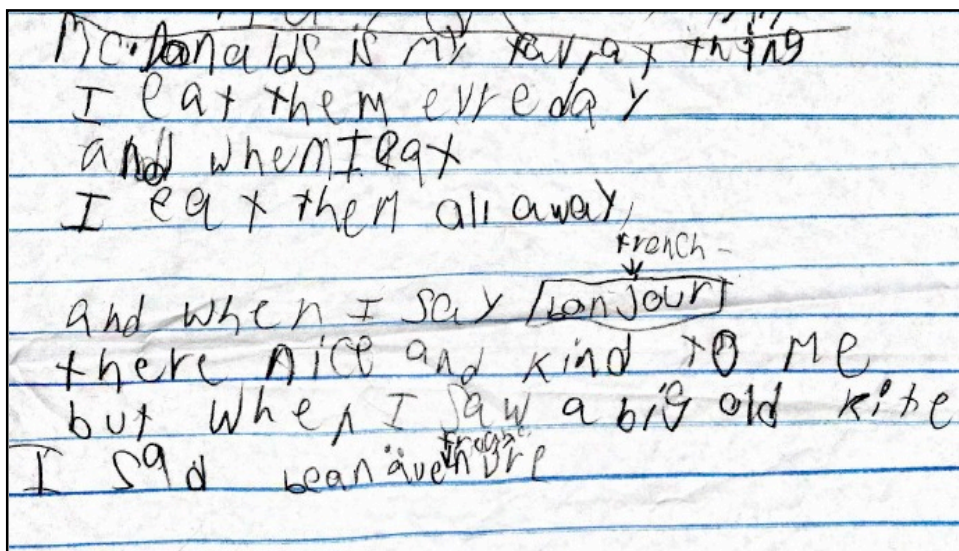 McDonalds is my favrat thing
I eat them evreday
and when I eat
I eat them all away,
french
and when I say [bonjour]
there nice and kind to me
but when I saw a big old kite
I sad